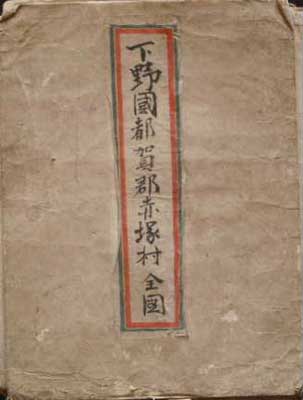 下野國都賀郡赤塚村全図